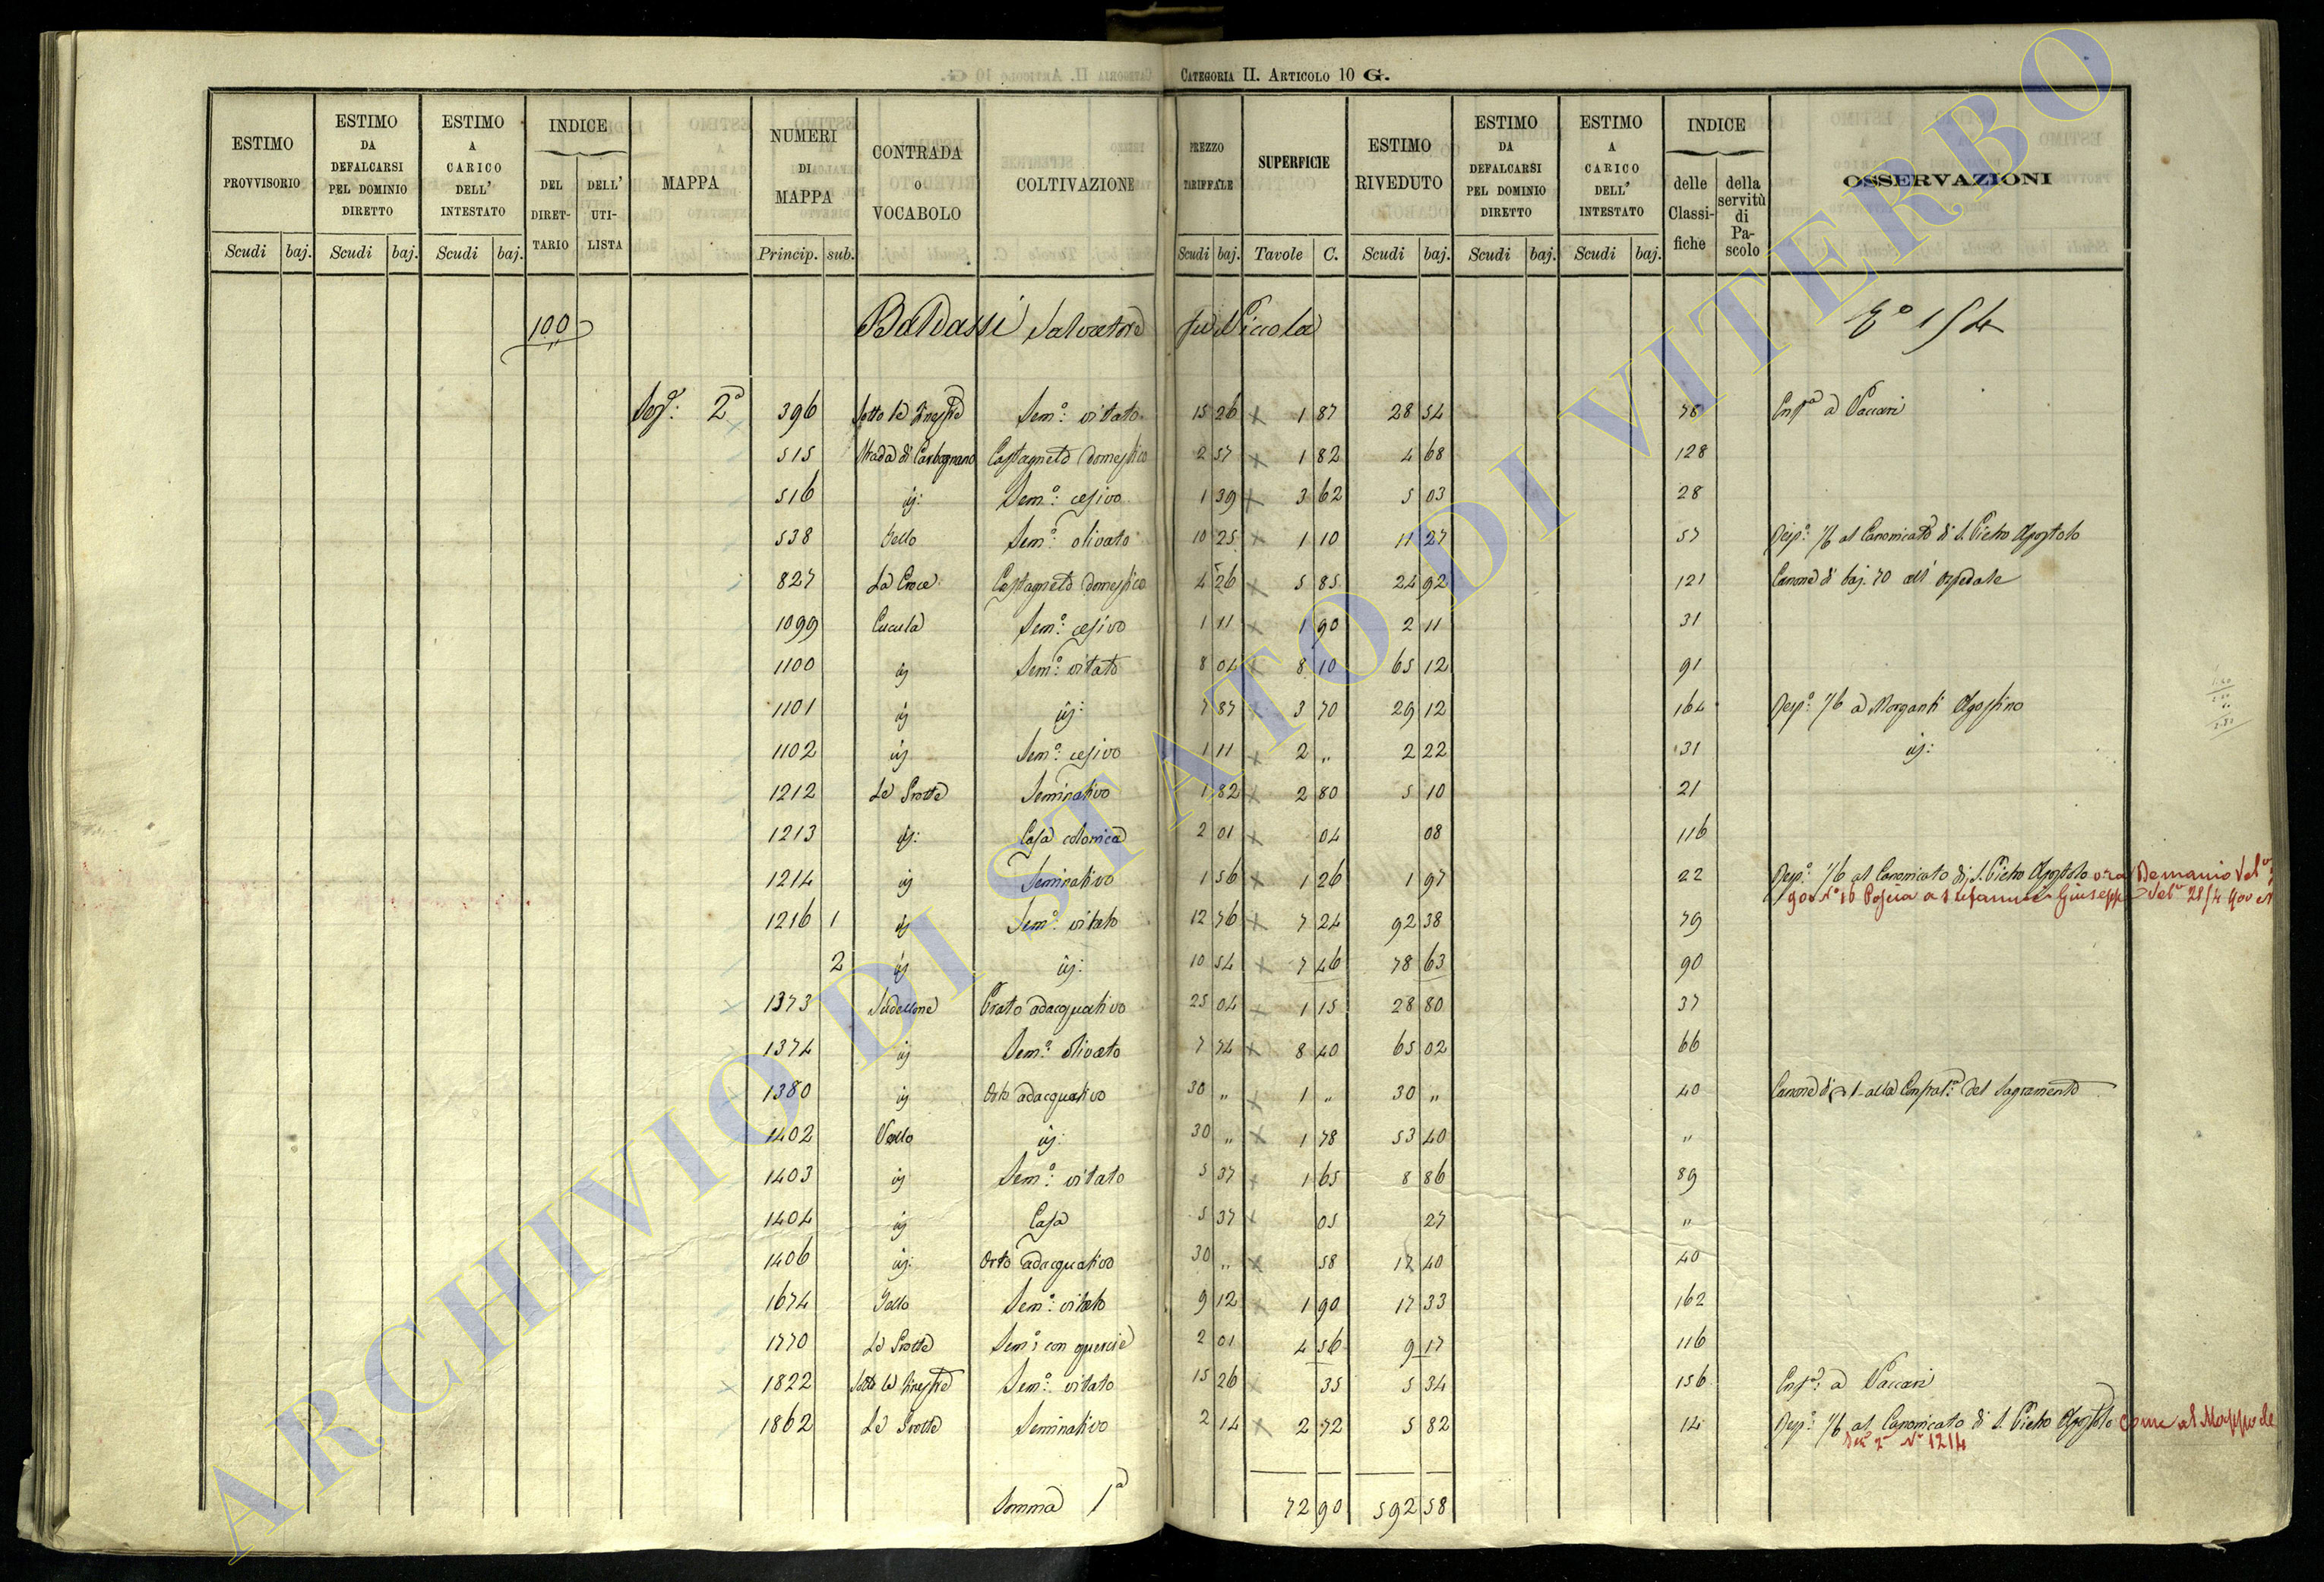 CATEGORIA II. ARTICOLO 10 G.
ESTIMO PROVVISORIO Scudi baj. ESTIMO DA DEFALCARSI PEL DOMINIO DIRETTO Scudi baj. ESTIMO A CARICO DELL' INTESTATO Scudi baj. INDICE DEL DIRETTARIO DELL' UTILISTA MAPPA NUMERI DI MAPPA Princip. sub. CONTRADA O VOCABOLO COLTIVAZIONE PREZZO TARIFFALE Scudi baj. SUPERFICIE Tavole C. ESTIMO RIVEDUTO Scudi baj. ESTIMO DA DEFALCARSI PEL DOMINIO DIRETTO Scudi baj. ESTIMO A CARICO DELL' INTESTATO Scudi baj. INDICE delle Classifiche della servitù di Pascolo OSSERVAZIONI
100 Baldassi Salvatore fu Niccola 154
Sez.e: 2a 396 Sotto le Finestre Sem.o: vitato 15 26 1 87 28 54 78 Enf.a a Vaccari
515 Strada di Carbognano Castagneto domestico 2 57 1 82 4 68 128
516 id: Sem.o: cesivo 1 39 3 62 5 03 28
538 Sem.o: olivato 10 25 1 10 11 27 57 Risp.a: 1/6 al Canonicato di S. Pietro Apostolo
827 La Croce Castagneto domestico 4 26 5 85 24 92 121 Canone di baj. 70 all' ospedale
1099 Cucula Sem.o: cesivo 1 11 1 90 2 11 31
1100 id Sem.o: vitato 8 04 8 10 65 12 91
1101 id id: 7 87 3 70 29 12 164 Risp.a: 1/6 a Morganti Agostino
1102 id Sem.o: cesivo 1 11 2 „ 2 22 31 id:
1212 Le Grotte Seminativo 1 82 2 80 5 10 21
1213 id: Casa colonica 2 01 04 08 116
1214 id Seminativo 1 56 1 26 1 97 22 Risp.a: 1/6 al Canonicato di S. Pietro Apostolo ora Demanio
Poscia a Giuseppe 28/4
1216 1 id Sem.o: vitato 12 76 7 24 92 38 79
2 id id: 10 54 7 46 78 63 90
1373 Prato adacquativo 25 04 1 15 28 80 37
1374 id Sem.o: olivato 7 74 8 40 65 02 66
1380 id Orto adacquativo 30 „ 1 „ 30 „ 40 Canone di 1 alla Confrat.a: del Sagramento
1402 Vallo id: 30 „ 1 78 53 40 „
1403 id Sem.o: vitato 5 37 1 65 8 86 89
1404 id Casa 5 37 05 27 „
1406 id: Orto adacquativo 30 „ 58 17 40 40
1674 Sem.o: vitato 9 12 1 90 17 33 162
1770 Le Grotte Sem.o: con quercie 2 01 4 56 9 17 116
1822 Sotto le Finestre Sem.o: vitato 15 26 35 5 34 156 Enf.a: a Vaccari
1862 Le Grotte Seminativo 2 14 2 72 5 82 14 Risp.a: 1/6 al Canonicato di S. Pietro Apostolo come al Mappale
Sez. 2a No 1214
Somma 1a 72 90 592 58
ARCHIVIO DI STATO DI VITERBO